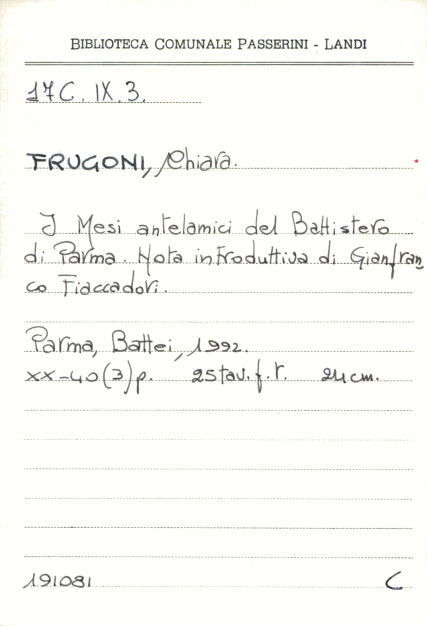 BIBLIOTECA COMUNALE PASSERINI - LANDI
17C. IX. 3.
FRUGONI, Chiara.
I Mesi antelamici del Battistero
di Parma. Nota introduttiva di Gianfran
co Fiaccadori.
Parma, Battei, 1992.
XX-40(3)p. 25 tav. f. t. 24 cm.
191081 C